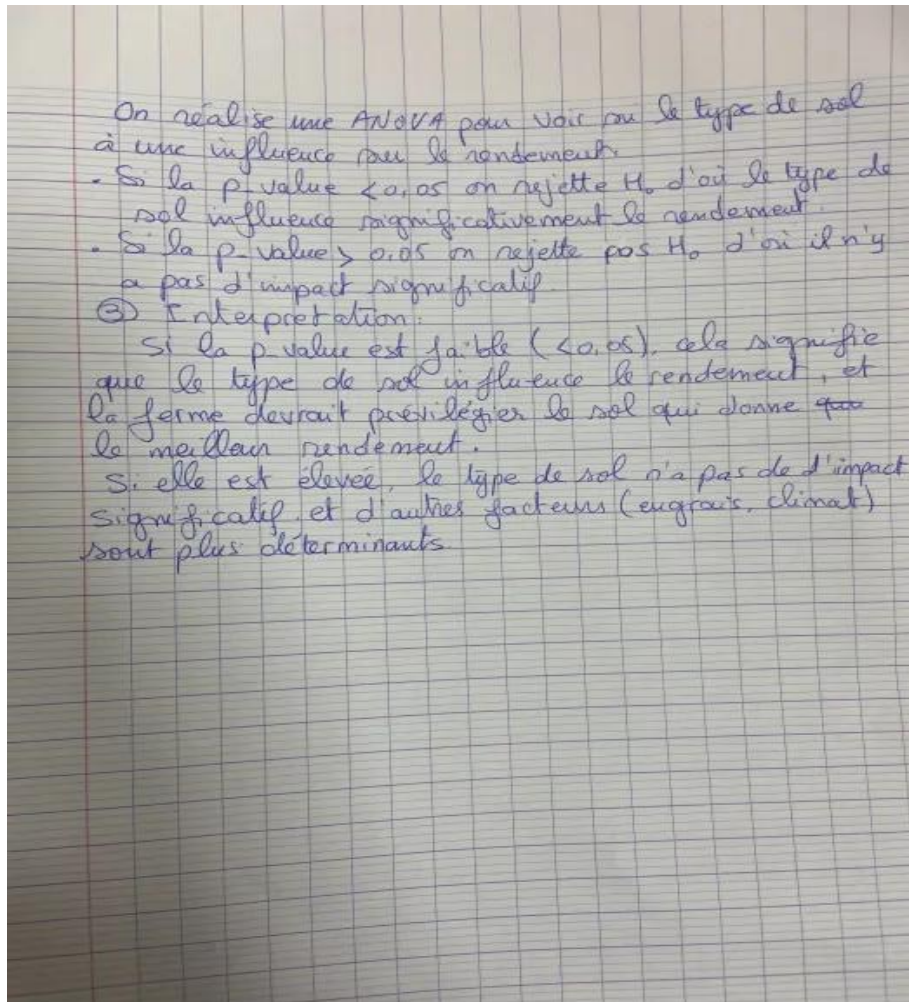 On réalise une ANOVA pour voir si le type de sol
à une influence sur le rendement.
. Si la p-value <0,05 on rejette H₀ d'où le type de
sol influence significativement le rendement.
. Si la p-value > 0,05 on rejette pas H₀ d'où il n'y
a pas d'impact significatif
③ Interprétation:
Si la p-value est faible (<0,05), cela signifie
que le type de sol influence le rendement, et
la ferme devrait prévilégier le sol qui donne
le meilleur rendement.
Si elle est élevée, le type de sol n'a pas de d'impact
significatif, et d'autres facteurs (engrais, climat)
sont plus déterminants